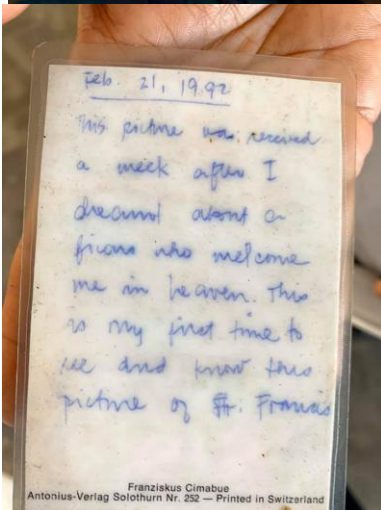 Feb. 21, 1992
This picture was received
a week after I
dreamt about a
who welcome
me in heaven. This
is my first time to
see and know this
picture of St. Francis
Franziskus Cimabue
Antonius-Verlag Solothurn Nr. 252 — Printed in Switzerland